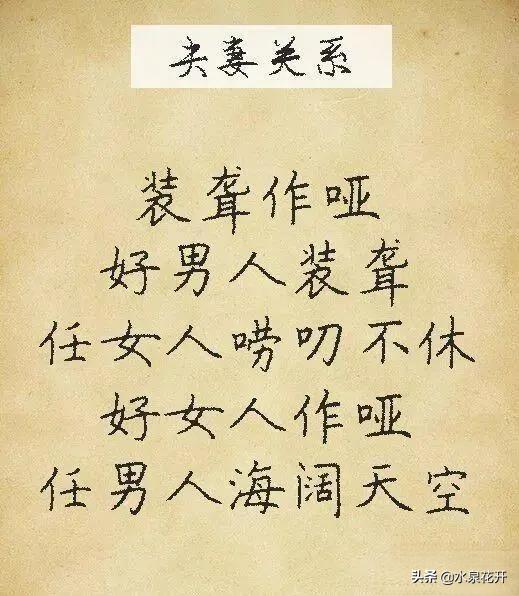 夫妻关系
装聋作哑
好男人装聋
任女人唠叨不休
好女人作哑
任男人海阔天空
头条 @水泉花开